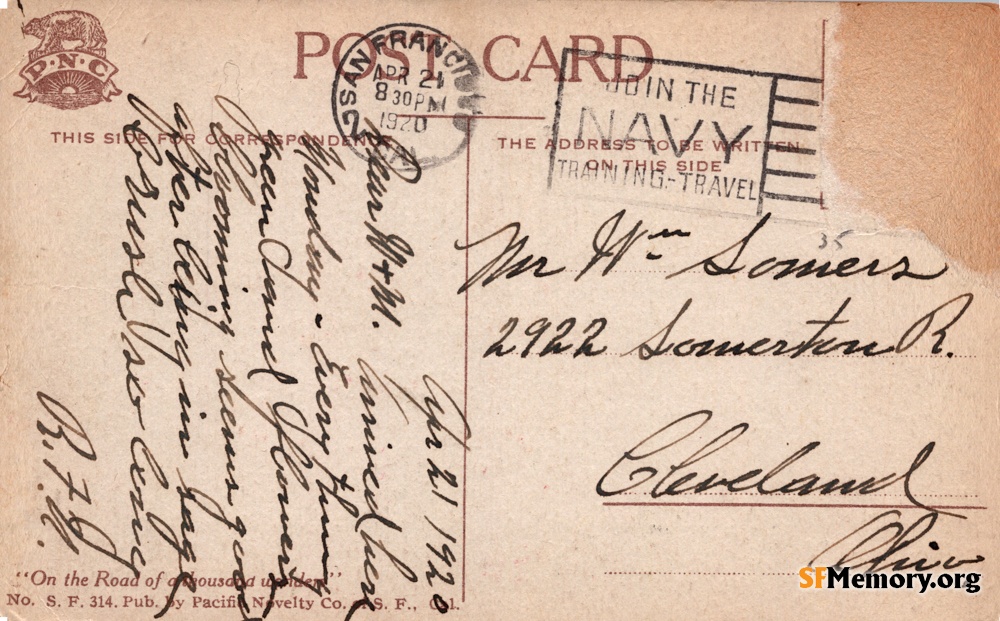 P·N·C
POST CARD
SAN FRANCISCO
CAL.
APR 21
8 30 PM
1920
JOIN THE
NAVY
TRAINING-TRAVEL
THIS SIDE FOR CORRESPONDENCE
THE ADDRESS TO BE WRITTEN
ON THIS SIDE
35
Apr 21 1920
Dear W & M. Arrived here
Monday - Everything
Green and flowers
blooming seems good
after being in sage
Brush so long
R. F. G.
Mr Wm Somers
2922 Somerton R.
Cleveland
Ohio
"On the Road of a thousand wonders"
No. S. F. 314. Pub. by Pacific Novelty Co., S. F., Cal.
SFMemory.org